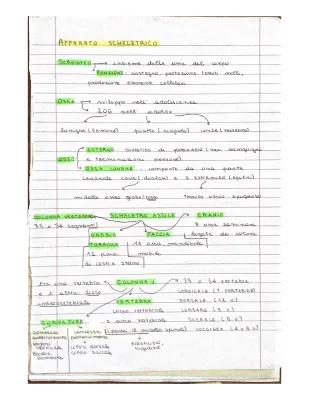 APPARATO SCHELETRICO
SCHELETRO → insieme delle ossa del corpo
FUNZIONE: sostegno, protezione tessuti molli,
produzione elementi cellulari
OSSA → sviluppo nell' adolescenza
→ 206 nell' adulto
lunghe (femore) piatte (scapola) corte (
OSSO ESTERNO rivestito di periostio (vasi sanguigni
e terminazioni nervose)
OSSA LUNGHE: composte da una parte
centrale cava (diafisi) e 2 estremità (epifisi)
midollo osseo giallo/rosso tessuto osseo spugnoso
COLONNA VERTEBRALE SCHELETRO ASSILE CRANIO
33 o 34 segmenti 8 ossa
GABBIA FACCIA legate da suture
TORACICA 14 ossa mandibola
12 paia mobile
di costole sterno
tra una vertebra COLONNA V. 33 o 34 vertebre
e l' altra disco CERVICALE (7 VERTEBRE)
intervertebrale VERTEBRA DORSALE (12 v.)
corpo vertebrale LOMBARE (5 v.)
CURVATURE arco vertebrale SACRALE (5 v.)
(passa il midollo spinale) COCCIGEA (4 o 5 v.)
convessa
anteriormente
concava
posteriormente
lordosi
cervicale
lordosi
lombare
cifosi dorsale
cifosi sacrale